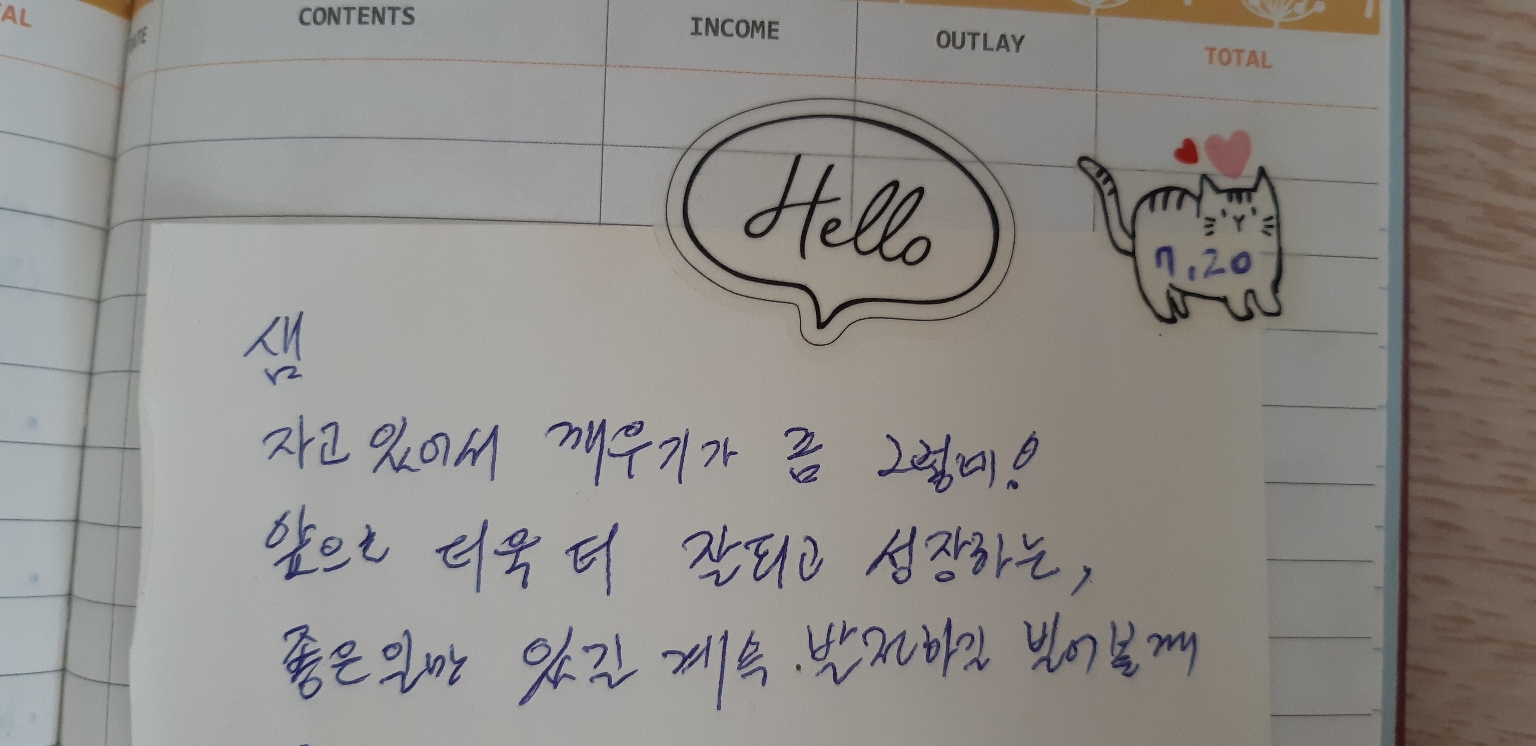 AL
CONTENTS INCOME OUTLAY TOTAL
Hello
7.20
샘
자고 있어서 깨우기가 좀 그렇네!
앞으로 더욱 더 잘되고 성장하는,
좋은일만 있길 계속 발전하길 빌어볼께